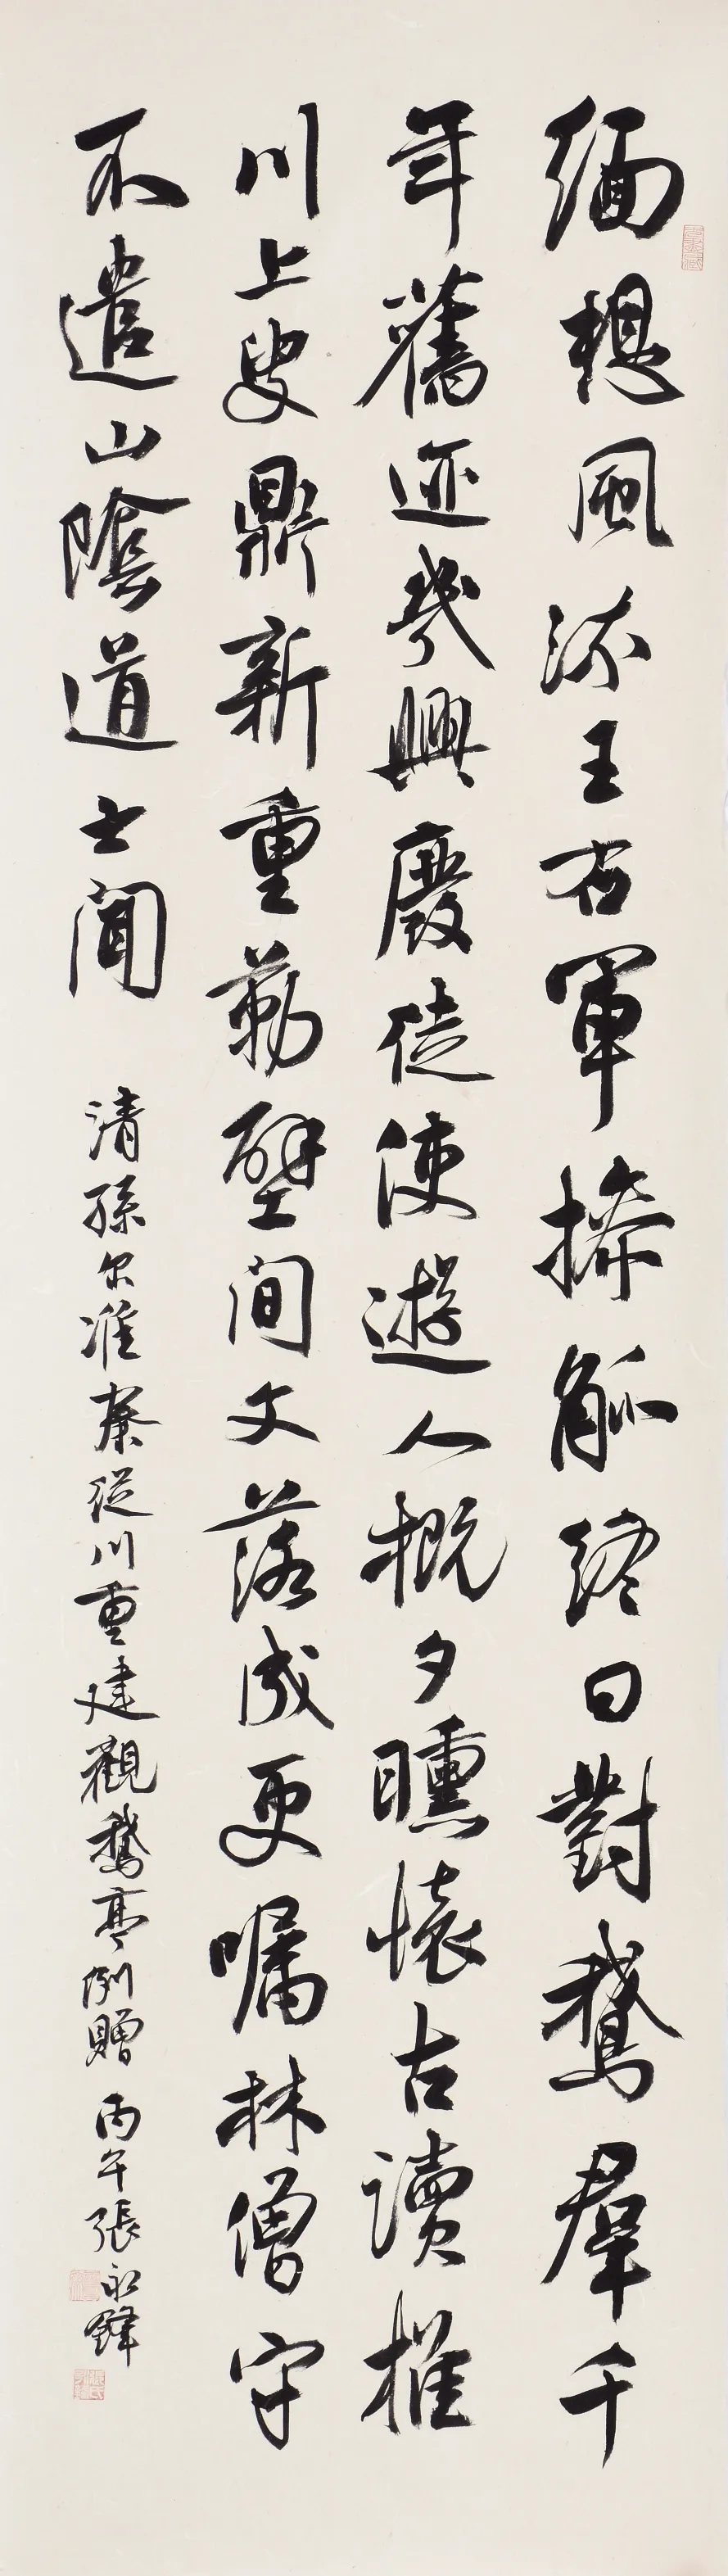 緬想風流王右軍捧觚終日對鵝羣千
年舊迹幾興廢徒使遊人概夕曛懷古讀權
川上叟鼎新重勒壁间文落成更嘱林僧守
不遣山陰道士聞
清孫尔准秦從川重建觀鵝亭例贈丙午張永鋒